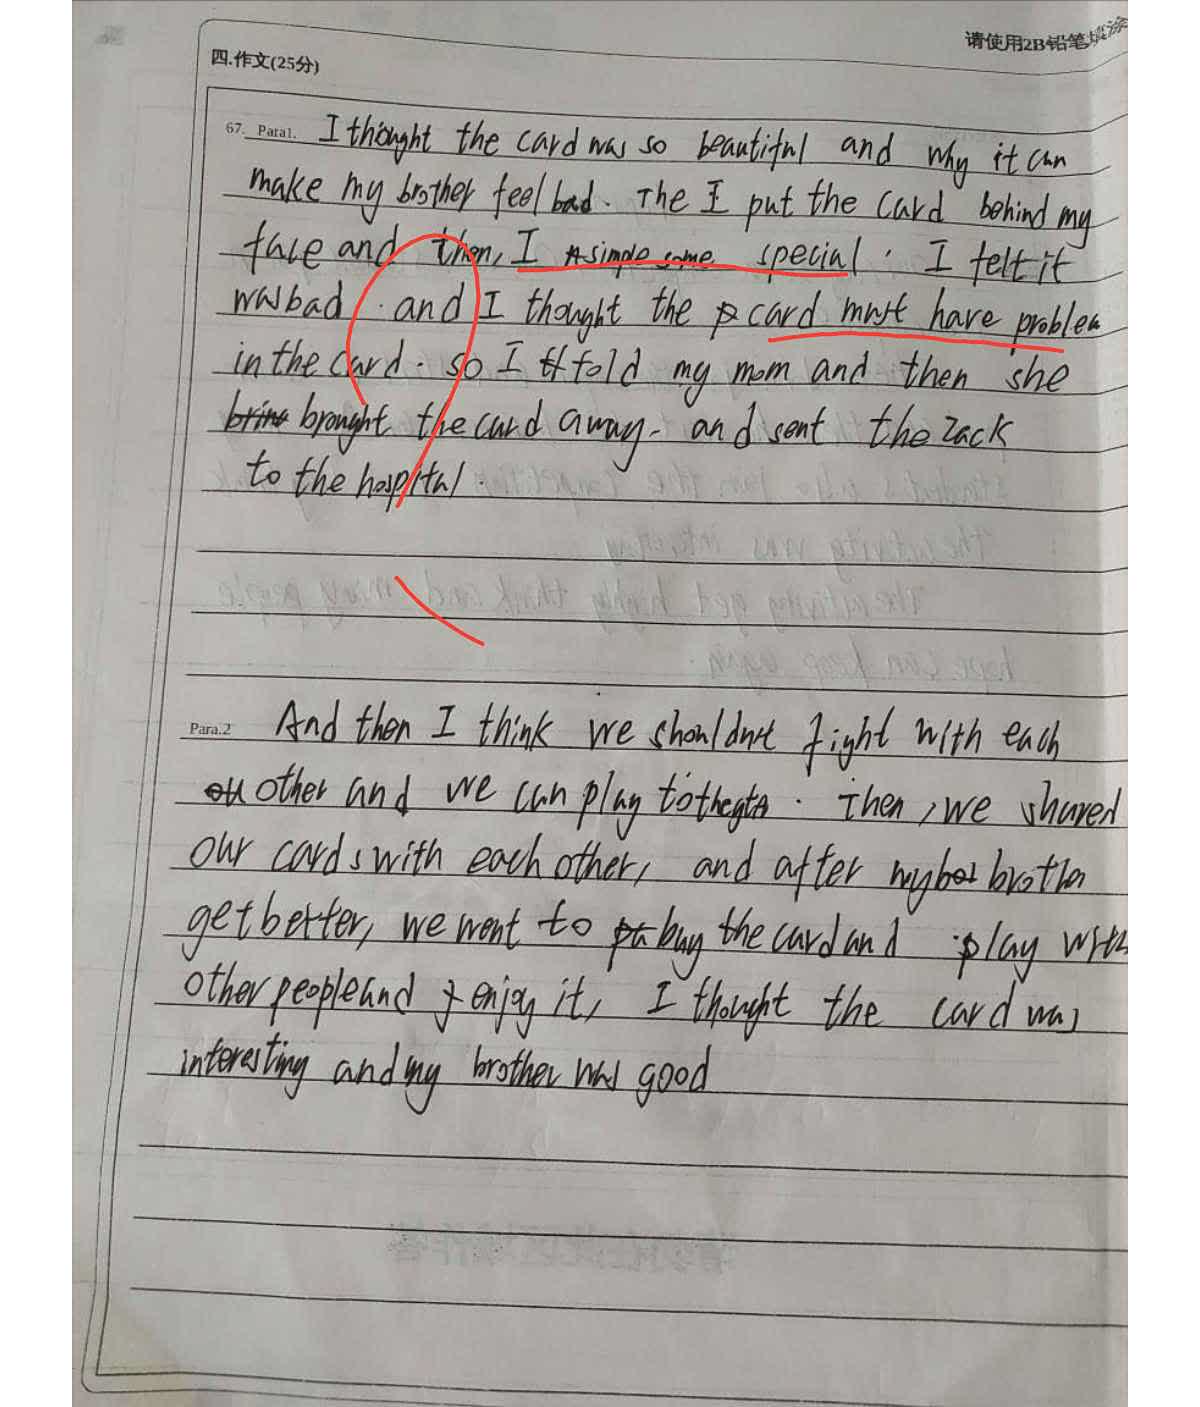 请使用2B铅笔填涂
四.作文(25分)
67. Para1. I thought the card was so beautiful and why it can
make my brother feel bad. The I put the card behind my
face and then, I some special. I felt it
was bad. and I thought the card must have problem
in the card. so I told my mom and then she
brought the card away. and sent the Zack
to the hospital.
Para.2 And then I think we shouldn't fight with each
other and we can play . Then, we shared
our cards with each other, and after my brother
get better, we went to buy the card and play with
other people and enjoy it, I thought the card was
interesting and my brother was good